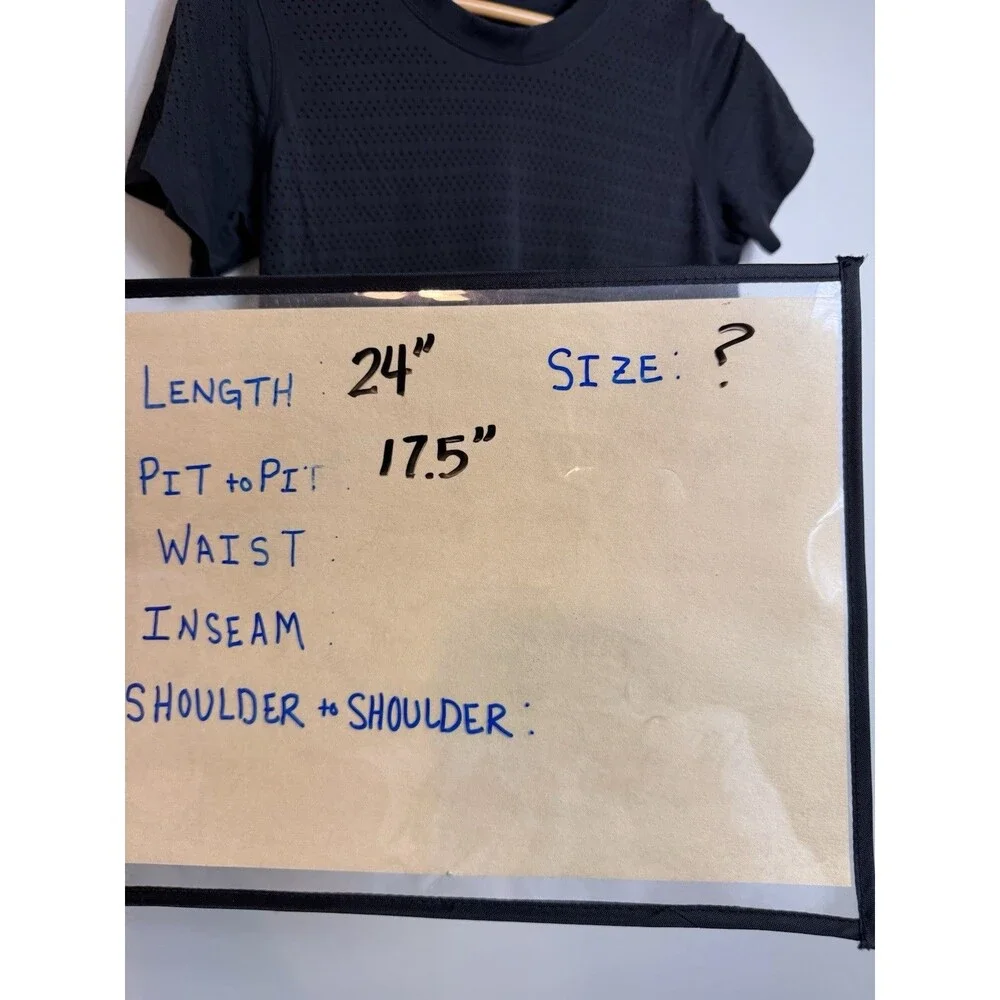 LENGTH : 24" SIZE: ?
PIT to PIT : 17.5"
WAIST :
INSEAM :
SHOULDER to SHOULDER: